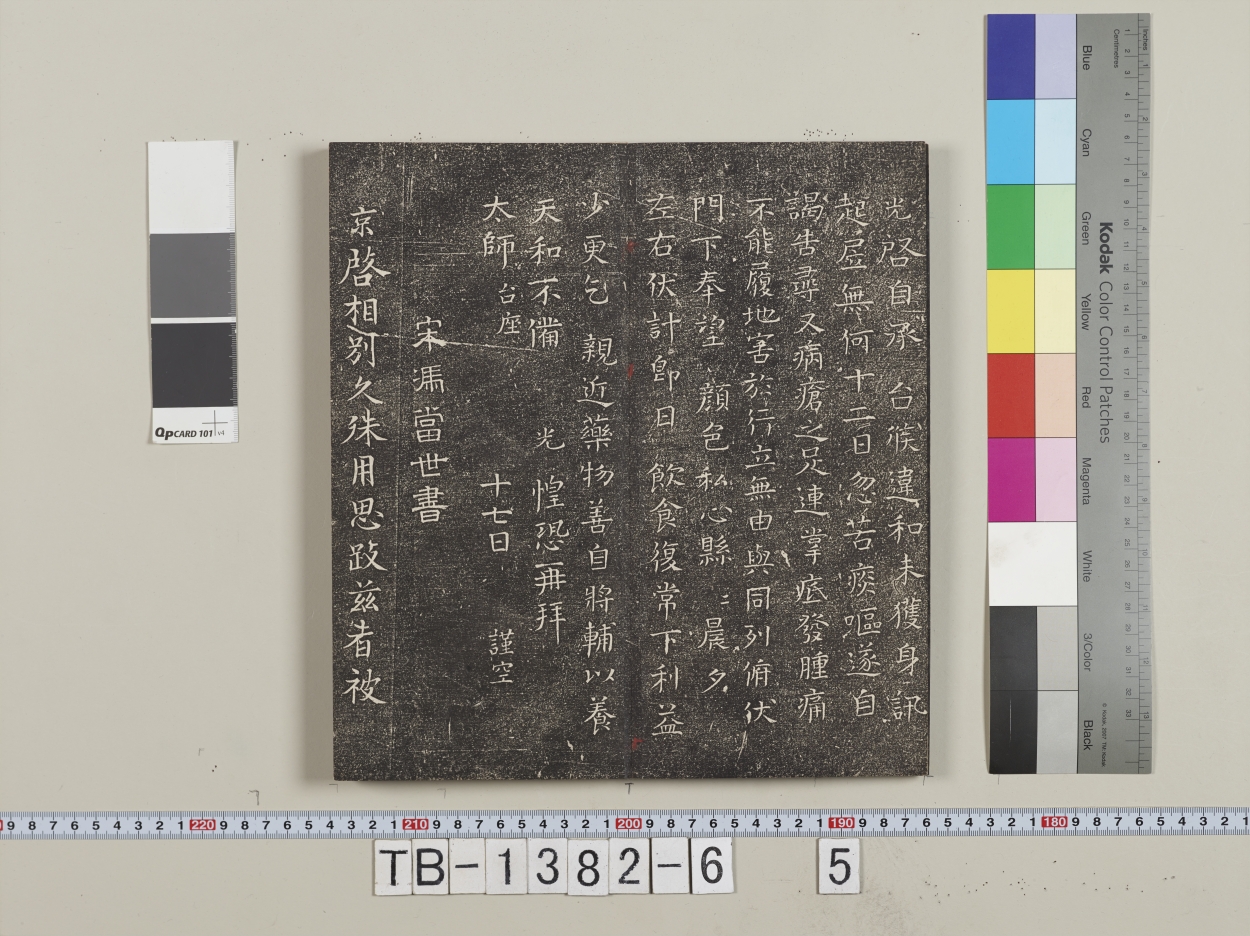 光啓自承　台候違和未獲身訊
起居無何十二日忽苦痰嘔遂自
謁告尋又病瘡之足連掌底發腫痛
不能履地害於行立無由與同列俯伏
門下奉望　顔色私心縣〻晨夕
左右伏計即日　飲食復常下利益
少更乞　親近藥物善自將輔以養
天和不備　光　惶恐再拜
太師台座　十七日　謹空
宋馮當世書
京啓相別久殊用思跂兹者被
Kodak Color Control Patches
Blue
Cyan
Green
Yellow
Red
Magenta
White
3/Color
Black
Inches
Centimetres
QPCARD 101 v4
220
210
200
190
180
TB-1382-6 5